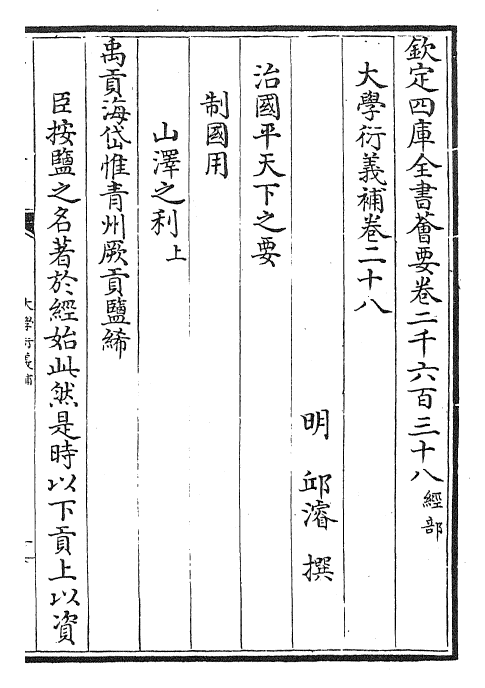 欽定四庫全書薈要卷二千六百三十八 經部
大學衍義補卷二十八
明 邱濬 撰
治國平天下之要
制國用
山澤之利上
禹貢海岱惟青州厥貢鹽絺
臣按鹽之名著於經始此然是時以下貢上以資
大學衍義補